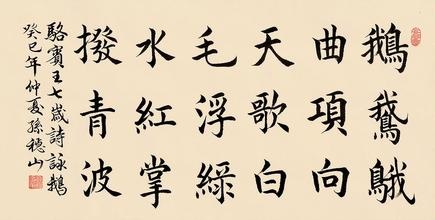 鵝鵞䳗
曲項向
天歌白
毛浮綠
水紅掌
撥青波
駱賓王七歲詩詠鵝
癸巳年仲夏孫穗山